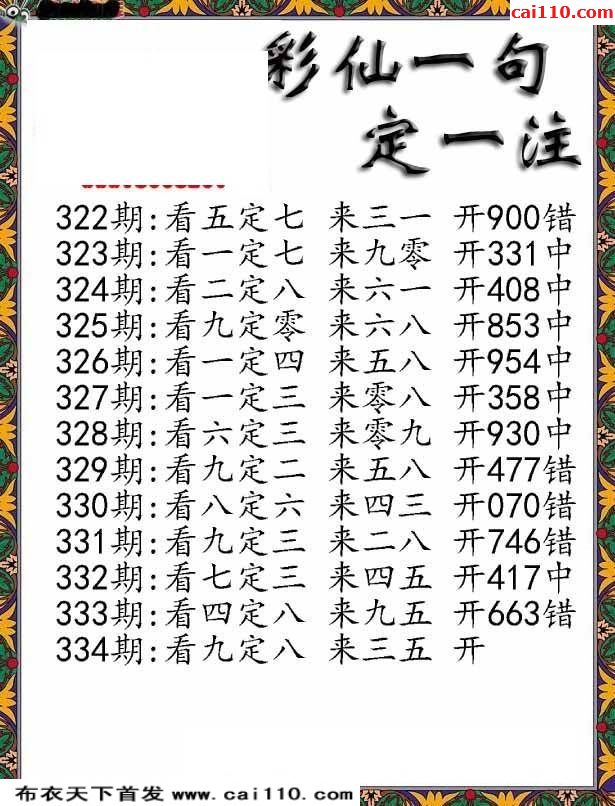 cai110.com
彩仙一句
定一注
322期:看五定七 来三一 开900错
323期:看一定七 来九零 开331中
324期:看二定八 来六一 开408中
325期:看九定零 来六八 开853中
326期:看一定四 来五八 开954中
327期:看一定三 来零八 开358中
328期:看六定三 来零九 开930中
329期:看九定二 来五八 开477错
330期:看八定六 来四三 开070错
331期:看九定三 来二八 开746错
332期:看七定三 来四五 开417中
333期:看四定八 来九五 开663错
334期:看九定八 来三五 开
布衣天下首发 www.cai110.com